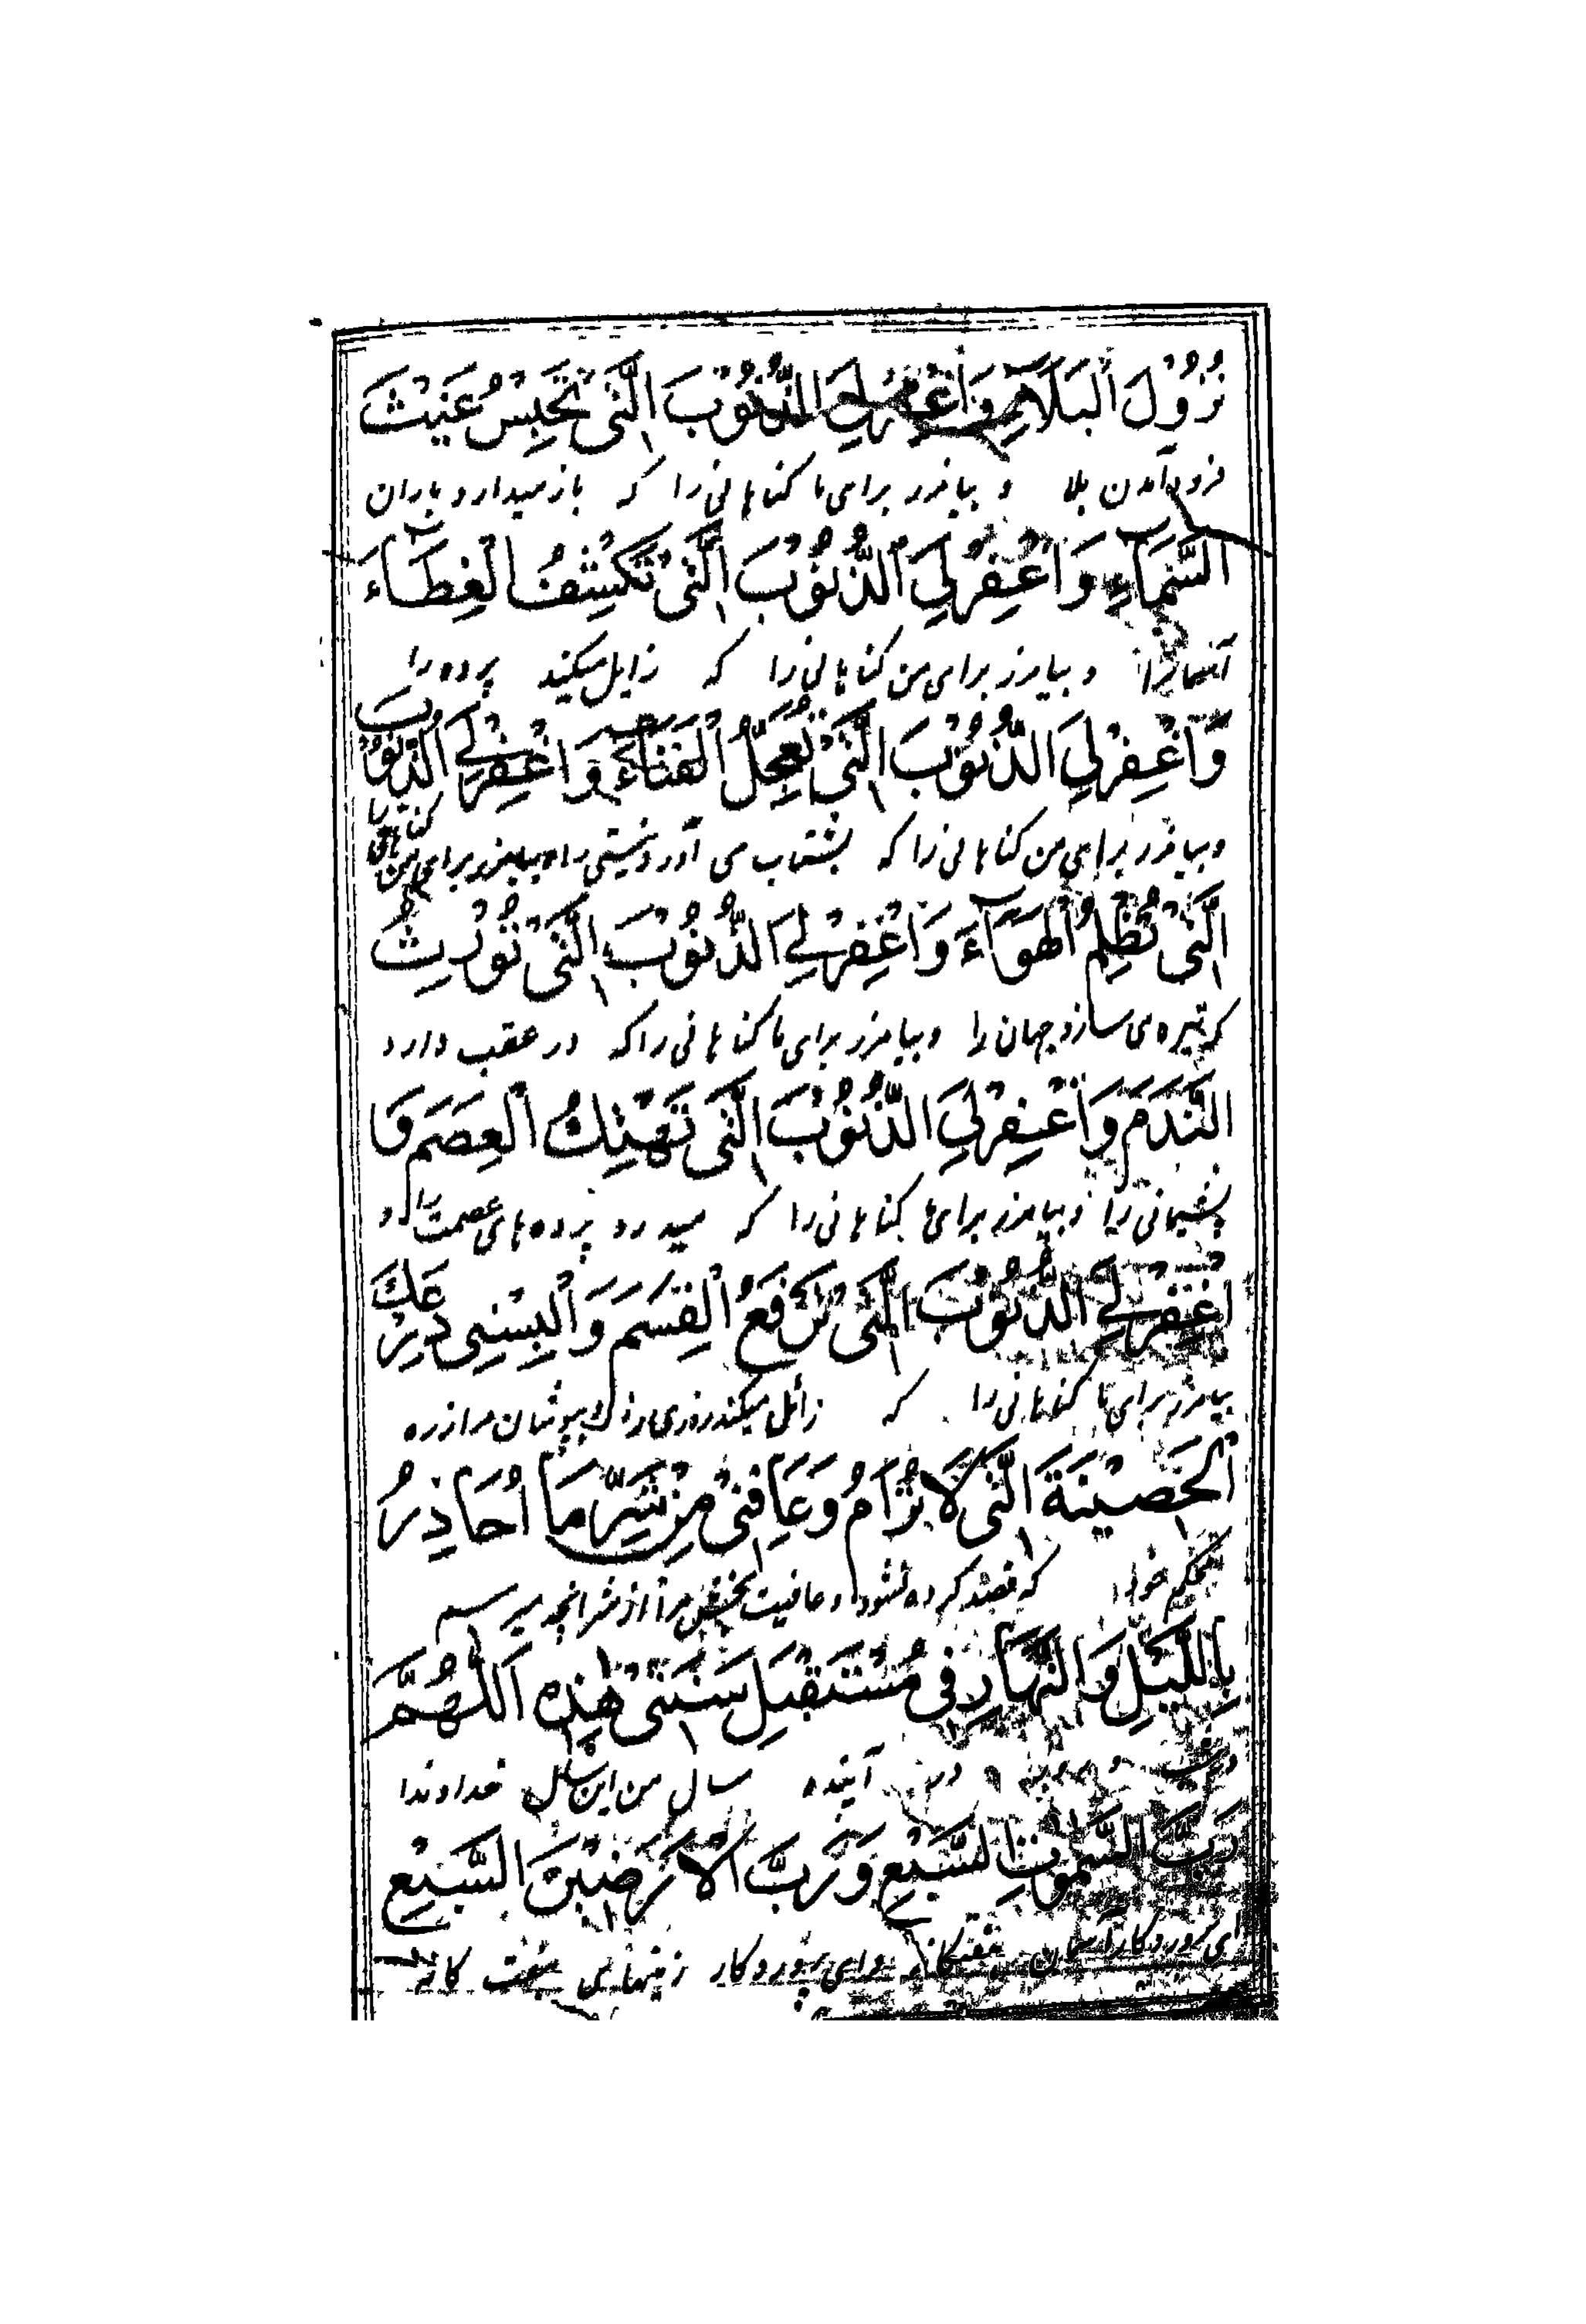 نُزُوْلَ الْبَلَاءِ وَاغْفِرْ لِيَ الذُّنُوْبَ الَّتِیْ تَحْبِسُ غَيْثَ
فرود آمدن بلا و بیامرز برای ما گناهانی را که باز میدارد باران
السَّمَآءِ وَاغْفِرْ لِيَ الذُّنُوْبَ الَّتِیْ تَكْشِفُ الْغِطَآءَ
و بیامرز برای من گناهانی را که زایل میکند پرده را
وَاغْفِرْ لِيَ الذُّنُوْبَ الَّتِیْ تُعَجِّلُ الْفَنَآءَ وَاغْفِرْ لِیَ الذُّنُوْبَ
و بیامرز برای من گناهانی را که بشتاب می آورد نیستی را و بیامرز برای من گناهانی
الَّتِیْ تُظْلِمُ الْهَوَآءَ وَاغْفِرْ لِیَ الذُّنُوْبَ الَّتِیْ تُوْرِثُ
که تیره می سازد جهان را و بیامرز برای ما گناهانی را که در عقب دارد
النَّدَمَ وَاغْفِرْ لِيَ الذُّنُوْبَ الَّتِیْ تَهْتِكُ الْعِصَمَ وَا
پشیمانی را و بیامرز برای ما گناهانی را که میدرد پرده های عصمت را و
غْفِرْ لِیَ الذُّنُوْبَ الَّتِیْ تَرْفَعُ الْقِسَمَ وَاَلْبِسْنِیْ دِرْعَكَ
بیامرز برای ما گناهانی را که زائل میکند روزی را و بپوشان مرا زره
الْحَصِيْنَةَ الَّتِیْ لَا تُرَامُ وَعَافِنِیْ مِنْ شَرِّ مَا اُحَاذِرُ
محکم خود را که قصد کرده نشود و عافیت بخش مرا از شر آنچه میترسم
بِاللَّيْلِ وَالنَّهَارِ فِیْ مُسْتَقْبِلِ سَنَتِیْ هٰذِهِ اَللّٰهُمَّ
آینده سال من این سال خداوندا
رَبَّ السَّمٰوٰتِ السَّبْعِ وَرَبَّ الْاَرَضِيْنَ السَّبْعِ
ای پروردگار آسمان هفتگانه و ای پروردگار زمینهای هفت گانه